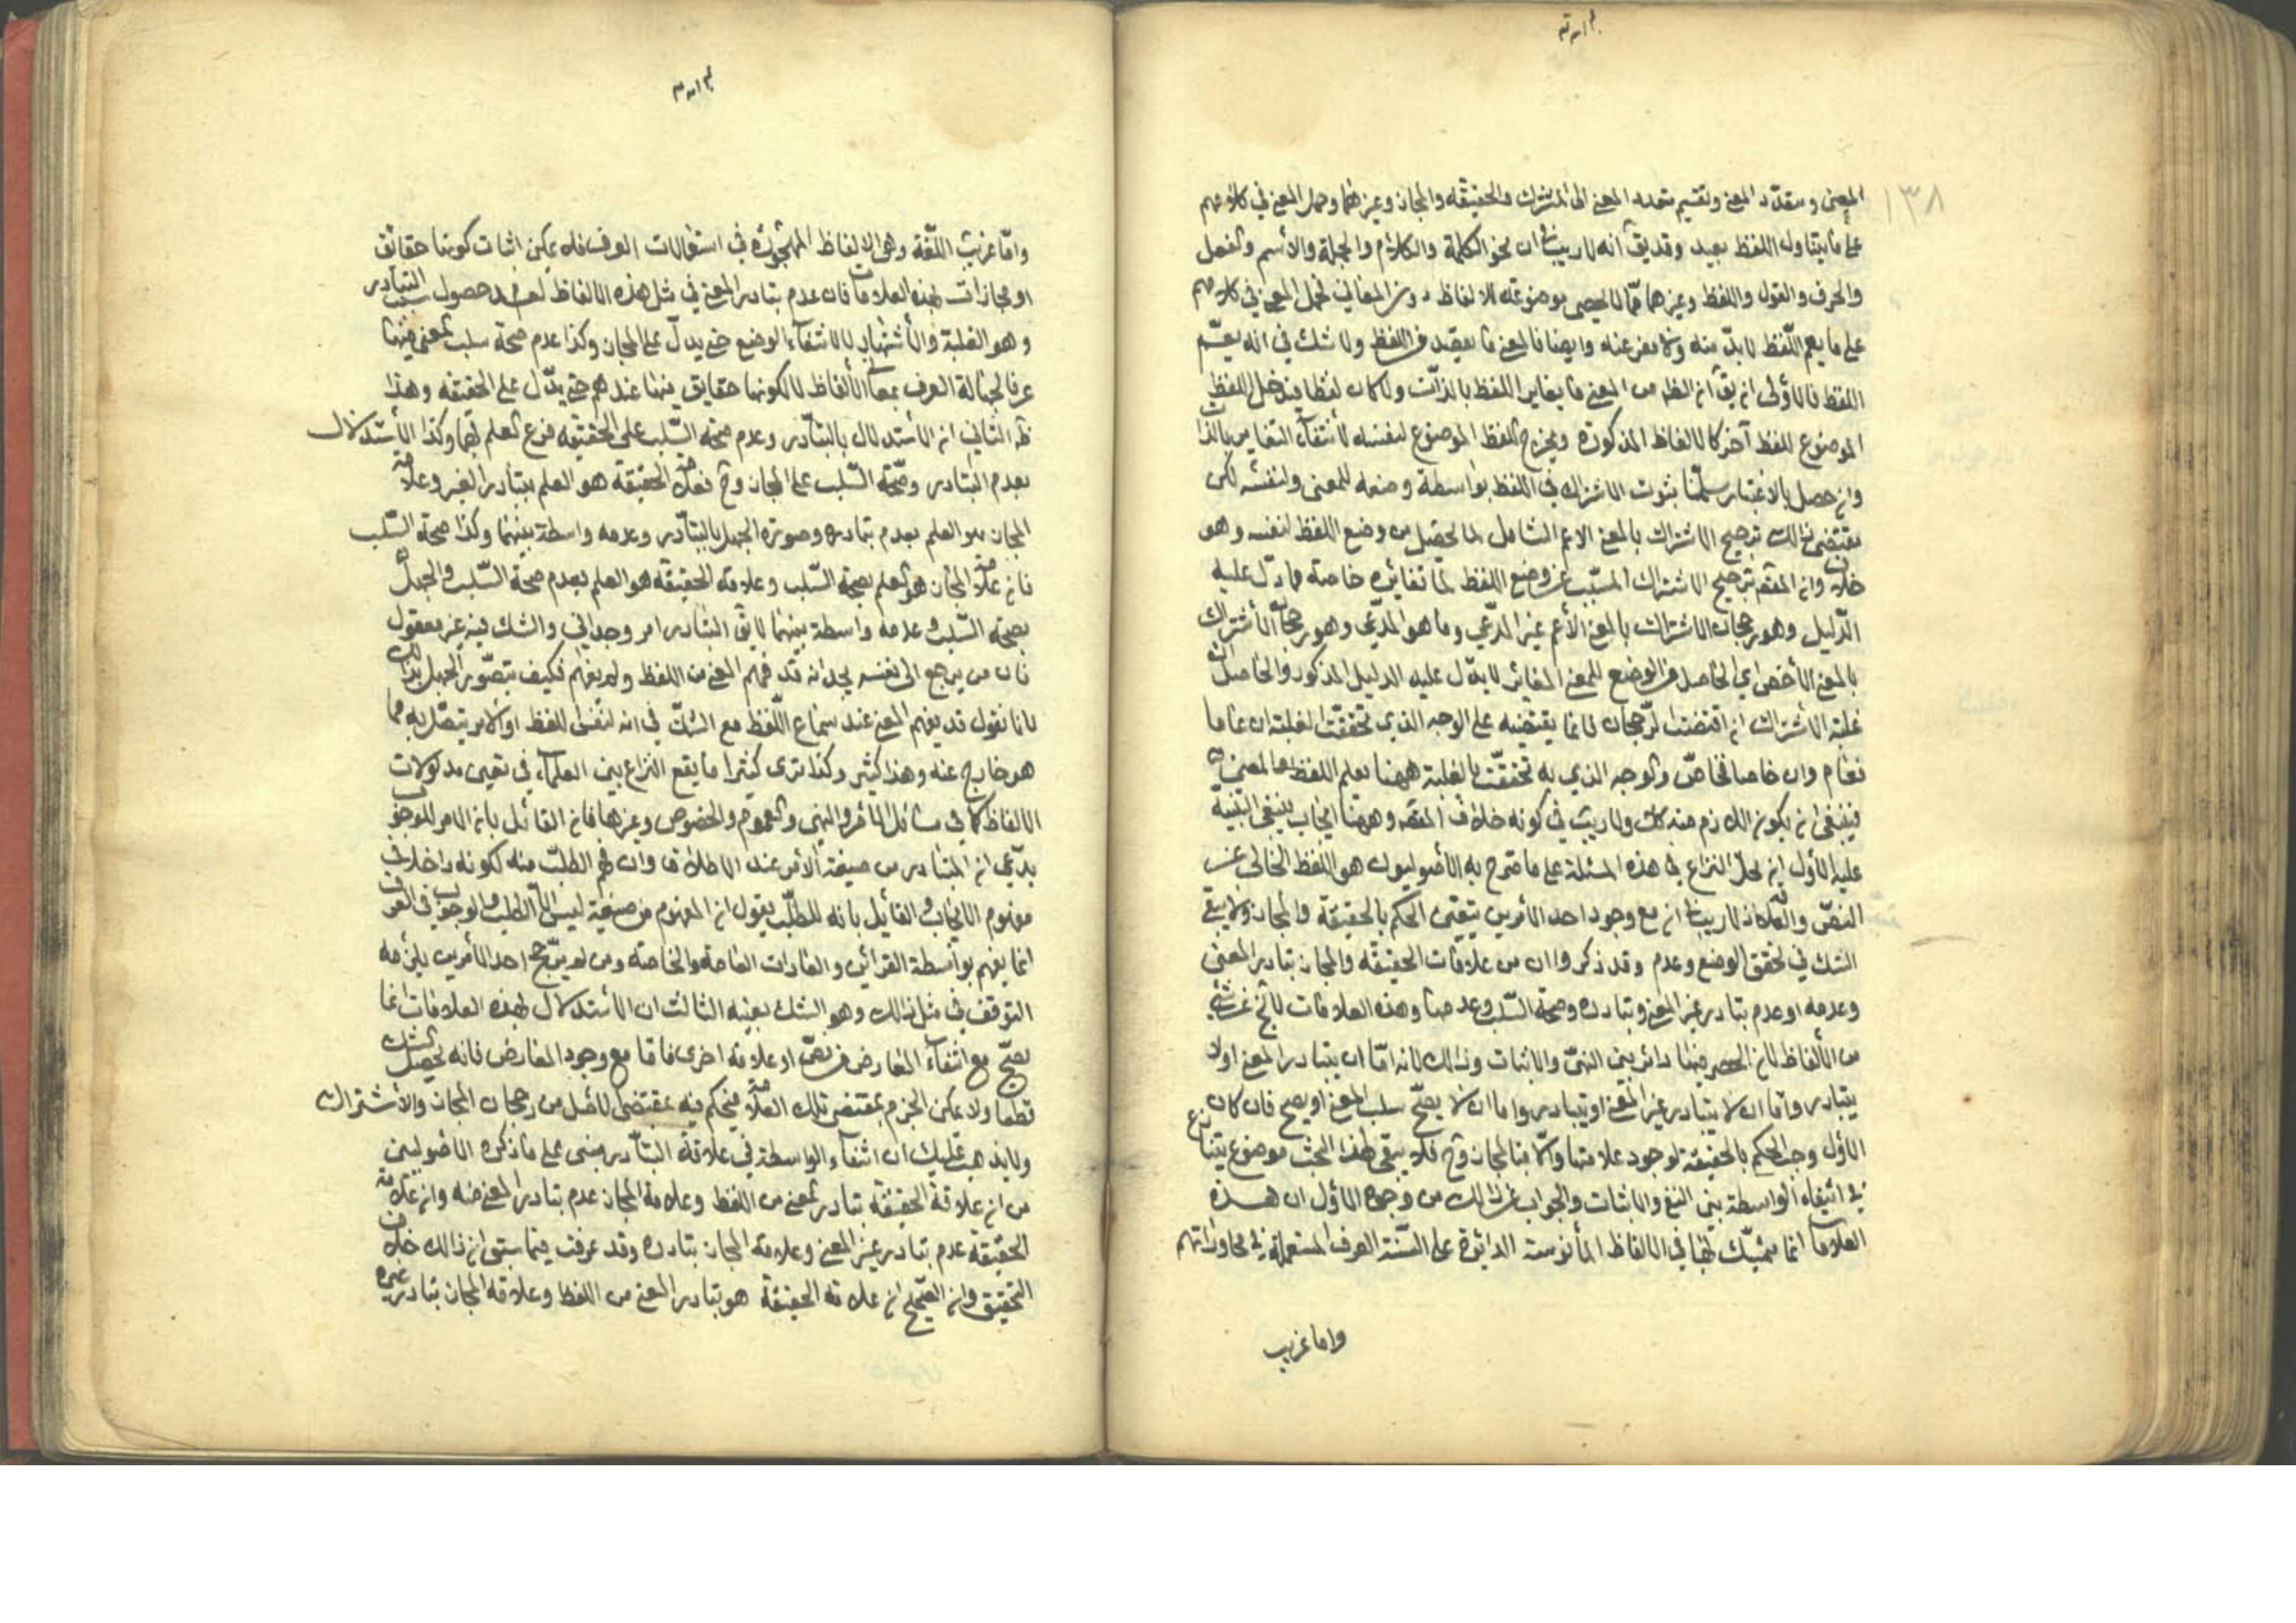 بسم الله
١٣٨
المعنى ومتعدّد المعنى وتقسيم متعدد المعنى الى المشترك والحقيقة والمجاز وغيرهما وحمل المعنى في كلامهم
على ما يتناول اللفظ بعيد وقد يق انه لا ريب في ان نحو الكلمة والكلام والجملة والاسم والفعل
والحرف والقول واللفظ وغيرها ممّا لا يحصى موضوعة للالفاظ دون المعاني فحمل المعنى في كلامهم
على ما يعم اللّفظ لا بدّ منه ولا مفر عنه وايضا فالمعنى ما يقصد من اللفظ ولا شك في انه يعمّ
اللفظ فالاولى ان يق ان الظ من المعنى ما يغاير اللفظ بالذات ولو كان لفظا فيدخل اللفظ
الموضوع للفظ آخر كالالفاظ المذكورة ويخرج اللفظ الموضوع لنفسه لانتفاء التغاير بالذات
وان حصل بالاعتبار سلّمنا ثبوت الاشتراك في اللفظ بواسطة وضعه للمعنى ولنفسه لكن
مقتضى ذلك ترجيح الاشتراك بالمعنى الاعم الشامل لما يحصل من وضع اللفظ لنفسه وهو
خلاف وان المقصد ترجيح الاشتراك المسبّب عن وضع اللفظ لما تغايره خاصة فما دلّ عليه
الدّليل وهو رجحان الاشتراك بالمعنى الأعم غير المدّعي وما هو المدّعي وهو رجحان الأشتراك
بالمعنى الأخص اي الحاصل من الوضع للمعنى المغاير لا يدل عليه الدليل المذكور والحاصل ان
غلبة الاشتراك ان اقتضت الرّجحان فانما يقتضيه على الوجه الذي تحققت الغلبة ان عاما
فعام وان خاصا فخاصّ والوجه الذي به تحققت الغلبة ههنا يعم اللفظ والمعنى
فينبغي ان يكون اللازم منه كك ولا ريب في كونه خلاف المقصد وههنا ابحاث ينبغي التنبيه
عليها الأول ان محلّ النزاع في هذه المسئلة على ما صرّح به الأصوليون هو اللفظ الخالي عن
النصّ والعلامة اذ لا ريب في ان مع وجود احد الأمرين يتعيّن الحكم بالحقيقة والمجاز ولا يبقى
الشك في تحقق الوضع وعدم وقد ذكروا ان من علامات الحقيقة والمجاز تبادر المعنى
وعدمه او عدم تبادر غير المعنى وتبادره وصحة السّلب وعدمها وهذه العلامات لا تخ عن شئ
من الألفاظ لان الحصر فيها دائر بين النفي والاثبات وذلك لانه امّا ان يتبادر المعنى اولا
يتبادر وامّا ان لا يتبادر غير المعنى او يتبادر واما ان لا يصحّ سلب المعنى او يصح فان كان
الأول وجب الحكم بالحقيقة لوجود علامتها والّا فبالمجاز وح فلا يبقى لهذا البحث موضوع يتنازع
في انتفاء الواسطة بين النفي والاثبات والجواب عن ذلك من وجوه الأوّل ان هذه
العلامات انما يتمسّك بها في الالفاظ المأنوسة الدائرة على السنة العرف المستعملة في محاوراتهم
واما غريب
بسم الله
وامّا غريب اللّغة وهي الالفاظ المهجورة في استعمالات العرف فلا يمكن اثبات كونها حقائق
او مجازات بهذه العلامات فان عدم تبادر المعنى في مثل هذه الالفاظ لعدم حصول سبب التبادر
وهو الغلبة والأشتهار لا لانتفاء الوضع حتى يدلّ على المجاز وكذا عدم صحة سلب المعنى فيها
عرفا لجهالة العرف بمعاني الألفاظ لا لكونها حقايق فيها عندهم حتى يدّل على الحقيقة وهذا
ظ الثاني ان الاستدلال بالتبادر وعدم صحة السّلب على الحقيقة فرع العلم بهما وكذا الأستدلال
بعدم التبادر وصحّة السّلب على المجاز وح فعلامة الحقيقة هو العلم بتبادر الغير وعلامة
المجاز هو العلم بعدم تبادره وصورة الجهل بالتبادر وعدمه واسطة بينهما وكذا صحة السّلب
فان علامة المجاز هو العلم بصحة السّلب وعلامة الحقيقة هو العلم بعدم صحة السّلب والجهل
بصحة السّلب وعدمه واسطة بينهما لا يق التبادر امر وجداني والشك فيه غير معقول
فان من يرجع الى نفسه يجد انه قد فهم المعنى من اللفظ ولم يفهم فكيف يتصوّر الجهل بذلك
لانا نقول قد يفهم المعنى عند سماع اللّفظ مع الشكّ في انه لنفس اللفظ او لامر يتصل به مما
هو خارج عنه وهذا كثير وكذا ترى كثيرا ما يقع النزاع بين العلماء في تعيين مدلولات
الالفاظ كما في مسائل الأمر والنهي والعموم والخصوص وغيرها فان القائل بان الامر للوجوب
يدّعي ان المتبادر من صيغة الأمر عند الاطلاق وان فهم الطلب منه لكونه داخلا في
مفهوم الايجاب والقايل بانه للطلب يقول ان المفهوم من صيغة ليس الا الطلب والوجوب في العرف
انما يفهم بواسطة القرائن والعادات العامة والخاصة ومن لم يترجّح احد الأمرين يلزمه
التوقف في مثل ذلك وهو الشك بعينه الثالث ان الأستدلال بهذه العلامات انما
يصحّ مع انتفاء المعارض من نصّ او علامة اخرى فاما مع وجود المعارض فانه يحصل الشك
قطعا ولا يمكن الجزم بمقتضى تلك العلامة فيحكم فيه بمقتضى الاصل من رجحان المجاز والأشتراك
ولا يذهب عليك ان انتفاء الواسطة في علامة التبادر مبنى على ما ذكره الاصوليين
من ان علامة الحقيقة تبادر المعنى من اللفظ وعلامة المجاز عدم تبادر المعنى منه وان علامة
الحقيقة عدم تبادر غير المعنى وعلامة المجاز تبادره وقد عرفت فيما سبق ان ذلك خلاف
التحقيق وان الصّحيح ان علامة الحقيقة هو تبادر المعنى من اللفظ وعلامة المجاز تبادر غيره